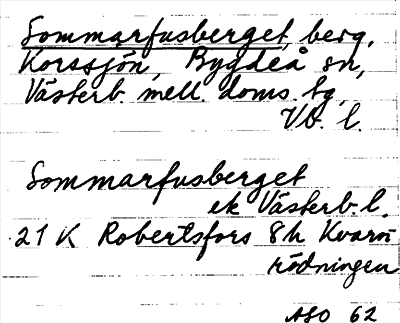 Sommarfusberget, berg,
Korssjön, Bygdeå sn,
Västerb. mell. doms. tg,
Vb. l.
Sommarfusberget
ek Västerb. l.
21 K Robertsfors 8h Kvarn-
rödningen
ASO 62